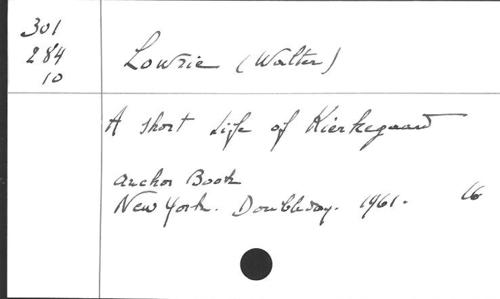 301
284
10
Lowrie (Walter)
A short Life of Kierkegaard
Anchor Book
New York. Doubleday. 1961. 16